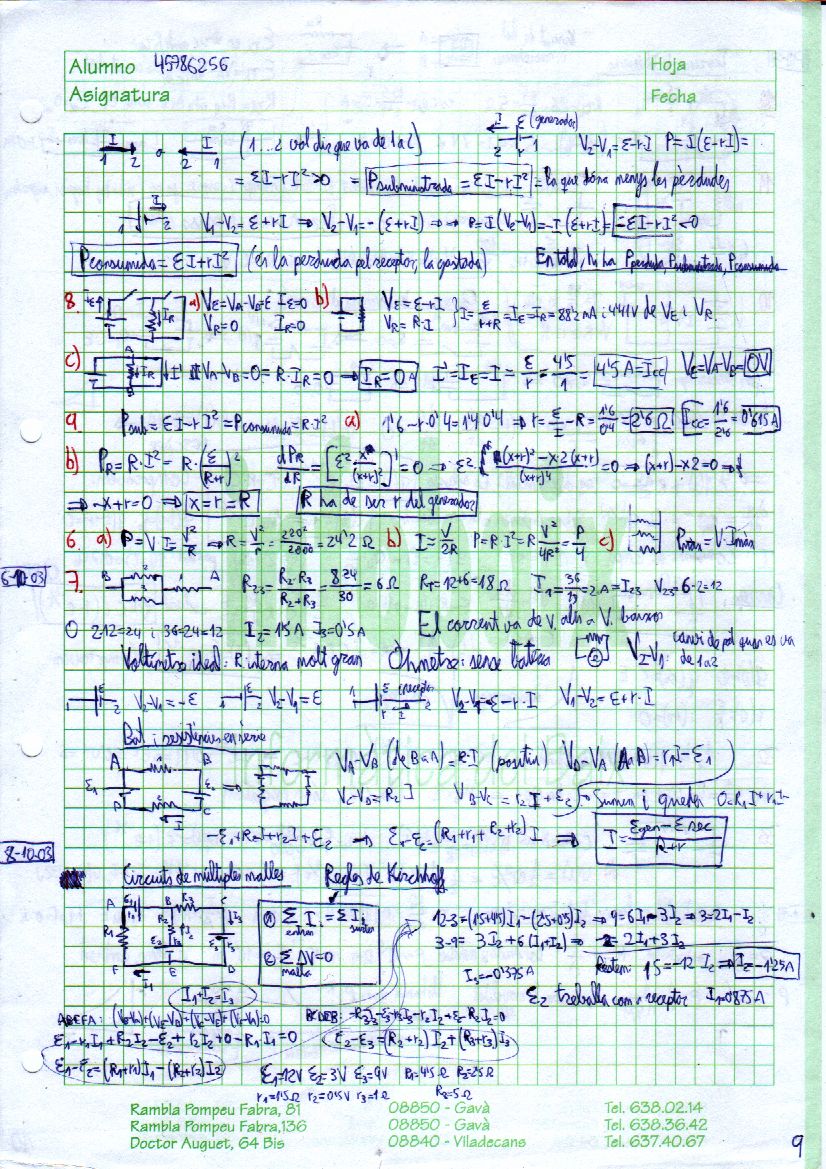 Alumno 45786256 Hoja
Asignatura Fecha
1 I 2 o 2 I 1 (1...2 vol dir que va de 1 a 2) I ε (generador) 2 r 1 V₂-V₁=ε-rI P=I(ε-rI)=
=εI-rI²>0 = Psubministrada=εI-rI² = la que dóna menys les pèrdudes
I 1 2 V₁-V₂=ε+rI ⇒ V₂-V₁=-(ε+rI) ⇒ P=I(V₂-V₁)=-I(ε+rI)=-εI-rI²<0
Pconsumida=εI+rI² (és la perduda pel receptor, la gastada) En total, hi ha Pperduda, Psubministrada, Pconsumida
8. a) Vε=VA-VB=ε Iε=0 b) Vε=ε-rI I=ε/(r+R)=Iε=IR=882mA i 4'41V de Vε i VR.
VR=0 IR=0 VR=R·I
c) A B IR I' VA-VB=0=R·IR=0 ⇒ IR=0A I'=Iε=I=ε/r=4'5/1=4'5A=Icc Vε=VA-VB=0V
9. Psub=εI-rI²=Pconsumida=R·I² a) 1'6-r·0'4=1'4·0'4 ⇒ r=ε/I-R=1'6/0'4=2'6Ω Icc=1'6/2'6=0'615A
b) PR=R·I²=R·(ε/(R+r))² dPR/dR=[ε² x/(x+r)²]'=0 ⇒ ε²·((x+r)²-x·2(x+r))/(x+r)⁴=0 ⇒ (x+r)-x2=0 ⇒
⇒ -x+r=0 ⇒ x=r=R R ha de ser r del generador
6. a) P=VI=V²/R ⇒ R=V²/P=220²/2000=24'2Ω b) I=V/2R P=R·I²=R·V²/4R²=P/4 c) Pmàx=V·Imàx
6-10-03
7. B A R₂₃=R₂·R₃/(R₂+R₃)=8·24/30=6Ω RT=12+6=18Ω I₁=36/18=2A=I₂₃ V₂₃=6·2=12
O 2·12=24 i 36-24=12 I₂=1'5A I₃=0'5A El corrent va de V. alts a V. baixos
Voltímetre ideal: R interna molt gran Òhmetre: sense bateria V₂-V₁: canvi de pot quan es va de 1 a 2
1 ε 2 V₂-V₁=-ε 1 ε 2 V₂-V₁=ε 1 ε (receptor) r I 2 V₂-V₁=-ε-r·I V₁-V₂=ε+r·I
Bat i resistències en sèrie
A B C D ε₁ ε₂ I VA-VB (de B a A)=R·I (positiu) VD-VA (A a B)=r₁I-ε₁
VC-VD=R₂I VB-VC=r₂I+ε₂ Sumem i queda 0=R₁I+r₁I-
-ε₁+R₂I+r₂I+ε₂ ⇒ ε₁-ε₂=(R₁+r₁+R₂+r₂)I ⇒ I=(εgen-εrec)/(R+r)
8-10-03
Circuits de múltiples malles Regles de Kirchhoff
A B C D E F ① Σ I entren=Σ I surten
② Σ malla ΔV=0
12-3=(1'5+4'5)I₁-(2'5+0'5)I₂ ⇒ 9=6I₁-3I₂ ⇒ 3=2I₁-I₂
3-9=3I₂+6(I₁+I₂) ⇒ -2=2I₁+3I₂
I₃=-0'375A Restem: 5=-4I₂ ⇒ I₂=-1'25A
I₁+I₂=I₃ ε₂ treballa com a receptor I₁=0'875A
ABEFA: (VB-VA)+(VE-VB)+(VF-VE)+(VA-VF)=0 BCDEB: -R₃I₃-ε₃-r₃I₃-r₂I₂+ε₂-R₂I₂=0
ε₁-r₁I₁+R₂I₂-ε₂+r₂I₂+0-R₁I₁=0 ε₂-ε₃=(R₂+r₂)I₂+(R₃+r₃)I₃
ε₁-ε₂=(R₁+r₁)I₁-(R₂+r₂)I₂ ε₁=12V ε₂=3V ε₃=9V R₁=4'5Ω R₂=2'5Ω
r₁=1'5Ω r₂=0'5V r₃=1Ω R₃=5Ω
Rambla Pompeu Fabra, 81 08850 - Gavà Tel. 638.02.14
Rambla Pompeu Fabra,136 08850 - Gavà Tel. 638.36.42
Doctor Auguet, 64 Bis 08840 - Viladecans Tel. 637.40.67
9